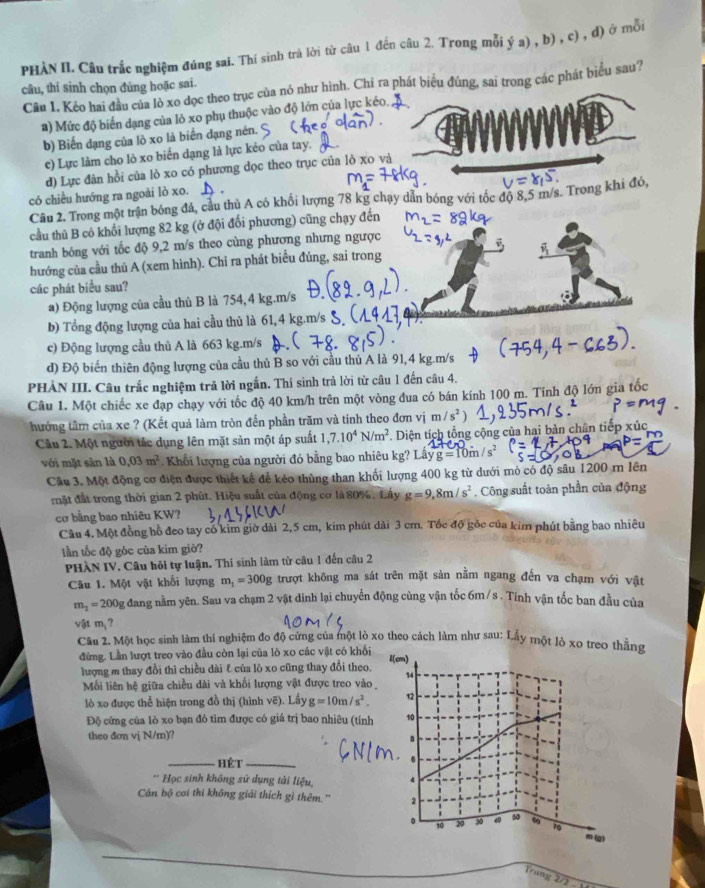 PHẦN II. Câu trắc nghiệm đúng sai. Thí sinh trả lời từ câu 1 đến câu 2. Trong mỗi ý a) , b) , c) , d) ở mỗi
câu, thí sinh chọn đúng hoặc sai.
Câu 1. Kéo hai đầu của lò xo dọc theo trục của nó như hình. Chỉ ra phát biểu đúng, sai trong các phát biểu sau?
a) Mức độ biến dạng của lò xo phụ thuộc vào độ lớn của lực kéo. Đ
b) Biến dạng của lò xo là biến dạng nén. S (kéo dãn).
c) Lực làm cho lò xo biến dạng là lực kéo của tay. Đ
d) Lực đàn hồi của lò xo có phương dọc theo trục của lò xo và
có chiều hướng ra ngoài lò xo. Đ.
m₁ = 78kg. v = 8,5.
Câu 2. Trong một trận bóng đá, cầu thủ A có khối lượng 78 kg chạy dẫn bóng với tốc độ 8,5 m/s. Trong khi đó,
cầu thủ B có khối lượng 82 kg (ở đội đối phương) cũng chạy đến m₂ = 82kg
tranh bóng với tốc độ 9,2 m/s theo cùng phương nhưng ngược v₂ = 9,2
hướng của cầu thủ A (xem hình). Chỉ ra phát biểu đúng, sai trong
các phát biểu sau?
a) Động lượng của cầu thủ B là 754,4 kg.m/s Đ.(82.9,2).
b) Tổng động lượng của hai cầu thủ là 61,4 kg.m/s S. (1417,4).
c) Động lượng cầu thủ A là 663 kg.m/s Đ.(78.8,5).
d) Độ biến thiên động lượng của cầu thủ B so với cầu thủ A là 91,4 kg.m/s Đ (754,4 - 663).
PHẦN III. Câu trắc nghiệm trả lời ngắn. Thí sinh trả lời từ câu 1 đến câu 4.
Câu 1. Một chiếc xe đạp chạy với tốc độ 40 km/h trên một vòng đua có bán kính 100 m. Tính độ lớn gia tốc
hướng tâm của xe ? (Kết quả làm tròn đến phần trăm và tính theo đơn vị m/s² ) 1,235m/s². P = mg.
Câu 2. Một người tác dụng lên mặt sàn một áp suất 1,7.10⁴ N/m². Diện tích tổng cộng của hai bàn chân tiếp xúc
với mặt sàn là 0,03 m². Khối lượng của người đó bằng bao nhiêu kg? Lấy g = 10m/s²
Câu 3. Một động cơ điện được thiết kế để kéo thùng than khối lượng 400 kg từ dưới mỏ có độ sâu 1200 m lên
mặt đất trong thời gian 2 phút. Hiệu suất của động cơ là 80%. Lấy g = 9,8m/s². Công suất toàn phần của động
cơ bằng bao nhiêu KW?
Câu 4. Một đồng hồ đeo tay có kim giờ dài 2,5 cm, kim phút dài 3 cm. Tốc độ góc của kim phút bằng bao nhiêu
lần tốc độ góc của kim giờ?
PHẦN IV. Câu hỏi tự luận. Thí sinh làm từ câu 1 đến câu 2
Câu 1. Một vật khối lượng m₁ = 300g trượt không ma sát trên mặt sàn nằm ngang đến va chạm với vật
m₂ = 200g đang nằm yên. Sau va chạm 2 vật dính lại chuyển động cùng vận tốc 6m/s . Tính vận tốc ban đầu của
vật m₁? 10m/s
Câu 2. Một học sinh làm thí nghiệm đo độ cứng của một lò xo theo cách làm như sau: Lấy một lò xo treo thẳng
đứng. Lần lượt treo vào đầu còn lại của lò xo các vật có khối
lượng m thay đổi thì chiều dài ℓ của lò xo cũng thay đổi theo.
Mối liên hệ giữa chiều dài và khối lượng vật được treo vào
lò xo được thể hiện trong đồ thị (hình vẽ). Lấy g = 10m/s².
Độ cứng của lò xo bạn đó tìm được có giá trị bao nhiêu (tính
theo đơn vị N/m)? 6N/m.
l(cm)
14
12
10
8
6
4
2
0 10 20 30 40 50 60 70
m (g)
HẾT
" Học sinh không sử dụng tài liệu,
Cán bộ coi thi không giải thích gì thêm. "
Trang 2/2